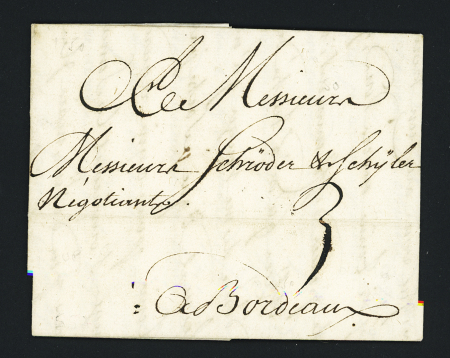 A Messieurs
Messieurs Schröder & Schÿler
Négotiants.
3
= A Bordeaux